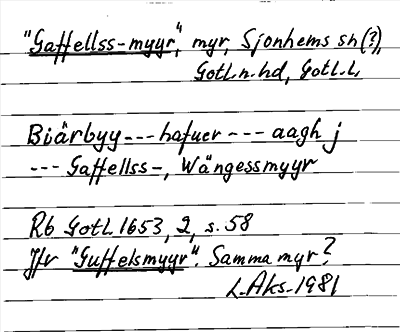 "Gaffellss-myyr", myr, Sjonhems sn (?),
Gotl.n.hd, Gotl.L.
Biärbyy --- hafuer --- aagh j
--- Gaffellss-, Wängessmyyr
Rb Gotl 1653, 2, s. 58
Jfr "Guffelsmyyr". Samma myr?
L.Aks. 1981